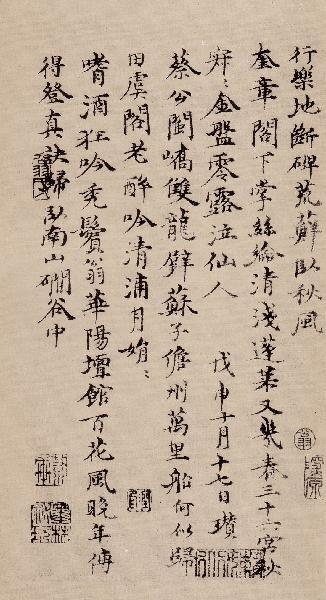 行樂地斷碑荒蘚臥秋風
奎章閣下掌絲綸清淺蓬萊又幾春三十六宮秋
寂〻金盤零露泣仙人 戊申十月十七日瓚
蔡公閩嶠雙龍璧蘇子儋州萬里船何似歸
田虞閣老醉吟清浦月娟〻
嗜酒狂吟禿鬢翁華陽壇館百花風晚年傳
得登真訣歸臥南山磵谷中